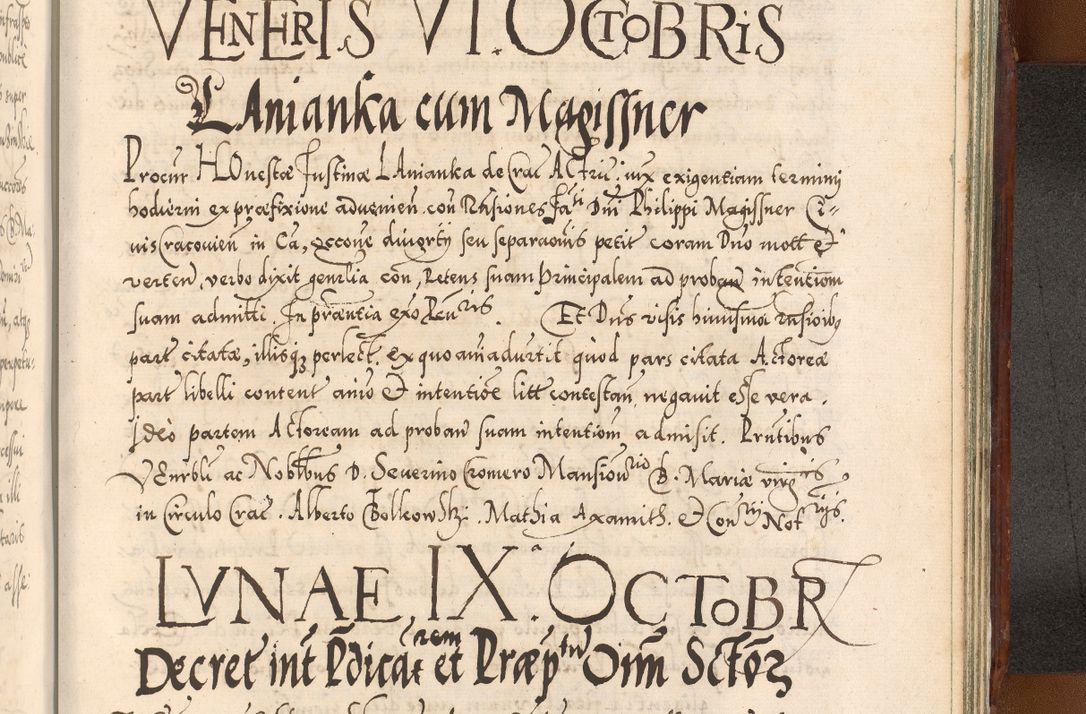 VENERIS VI. OCTOBRIS
LAnianka cum Magissner
Procur HOnestæ Justinæ LAnianka de Crac ACtric: iux exigentiam termini
hodierni ex præfixione aduenien. con Rnsiones fa: Dni Philippi Magissner Ci-
uis Cracouien in Ca, occone diuorty seu separaonis petit coram Dno mott et
verten, verbo dixit genrlia con, Petens suam Principalem ad proban intentiom
suam admitti. In præntia exo
Et Dns visis huiusmoi rnsioibq
part citatæ, illisqz perlect. ex quo aiaduertit quod pars citata ACtoreæ
part libelli content anio et intentioe litt contestan, negauit esse vera.
Ideo partem ACtoream ad proban suam intentiom admisit. Prntibus
VEnrbli ac Nobilibus D. Seuerino Cromero Mansion B. Mariæ virgis
in Circulo Crac. Alberto Bolkowski. Mathia Axamith. et Con Not
LVNAE IX. OCTOBR
Decret int Pdicatrem et Præp Oim Sctorz